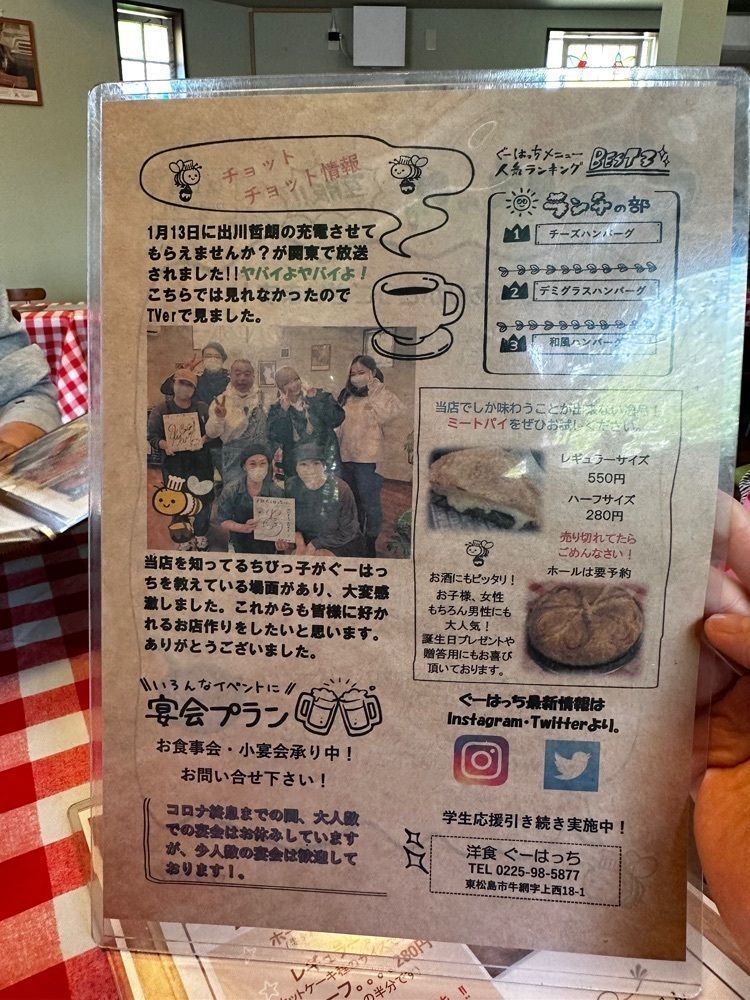 チョット
チョット情報
1月13日に出川哲朗の充電させて
もらえませんか？が関東で放送
されました!!ヤバイよヤバイよ！
こちらでは見れなかったので
TVerで見ました。
当店を知ってるちびっ子がぐーはっ
ちを教えている場面があり、大変感
激しました。これからも皆様に好か
れるお店作りをしたいと思います。
ありがとうございました。
いろんなイベントに
宴会プラン
お食事会・小宴会承り中！
お問い合せ下さい！
コロナ終息までの間、大人数
での宴会はお休みしています
が、少人数の宴会は歓迎して
おります！。
ぐーはっちメニュー
人気ランキング BEST3
ランチの部
1 チーズハンバーグ
2 デミグラスハンバーグ
3 和風ハンバーグ
当店でしか味わうことが出来ない
ミートパイをぜひお試しください。
レギュラーサイズ
550円
ハーフサイズ
280円
売り切れてたら
ごめんなさい！
ホールは要予約
お酒にもピッタリ！
お子様、女性
もちろん男性にも
大人気！
誕生日プレゼントや
贈答用にもお喜び
頂いております。
ぐーはっち最新情報は
Instagram・Twitterより。
学生応援引き続き実施中！
洋食 ぐーはっち
TEL 0225-98-5877
東松島市牛網字上西18-1
レギュラー
280円
ハーフ
の半分です